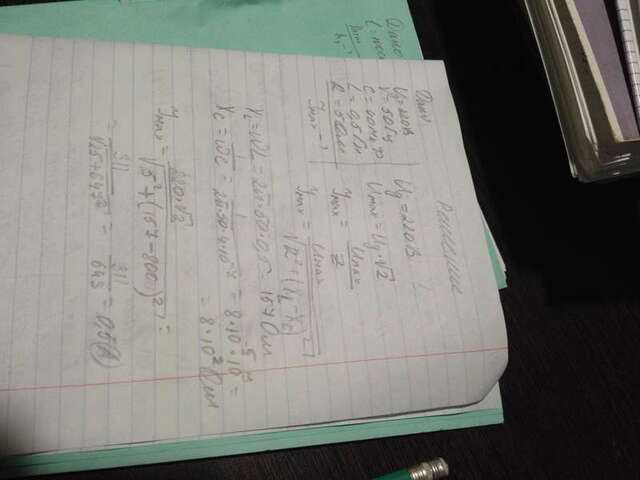 Дано
Решение
Uд=220В
ν=50Гц
C=40мкФ
L=0,5Гн
R=5Ом
Imax-?
Uд=220В
Umax=Uд·√2
Imax = Umax / Z
Imax = Umax / √R²+(XL-Xc)²
XL=ωL=2π·50·0,5=157Ом
Xc = 1/ωC = 1/2π·50·4·10⁻⁵ =
= 8·10² Ом
Imax = 220·√2 / √5²+(157-800)² =
= 311 / √25+643² = 311 / 643 = 0,5(А)
Дано